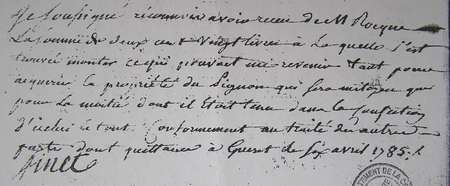 Je soussigné reconnois avoir recu de M Rocque
La somme de deux cent vingt livres à la quelle s'est
trouvé monter ce qui pouvait me revenir tant pour
acquerir la propriété du Pignon qui sera mitoyen que
pour la moitié dont il était tenu dans la confection
d'icelui le tout Conformement au traité des autres
parts dont quittance à Gueret le six avril 1785./.
finet